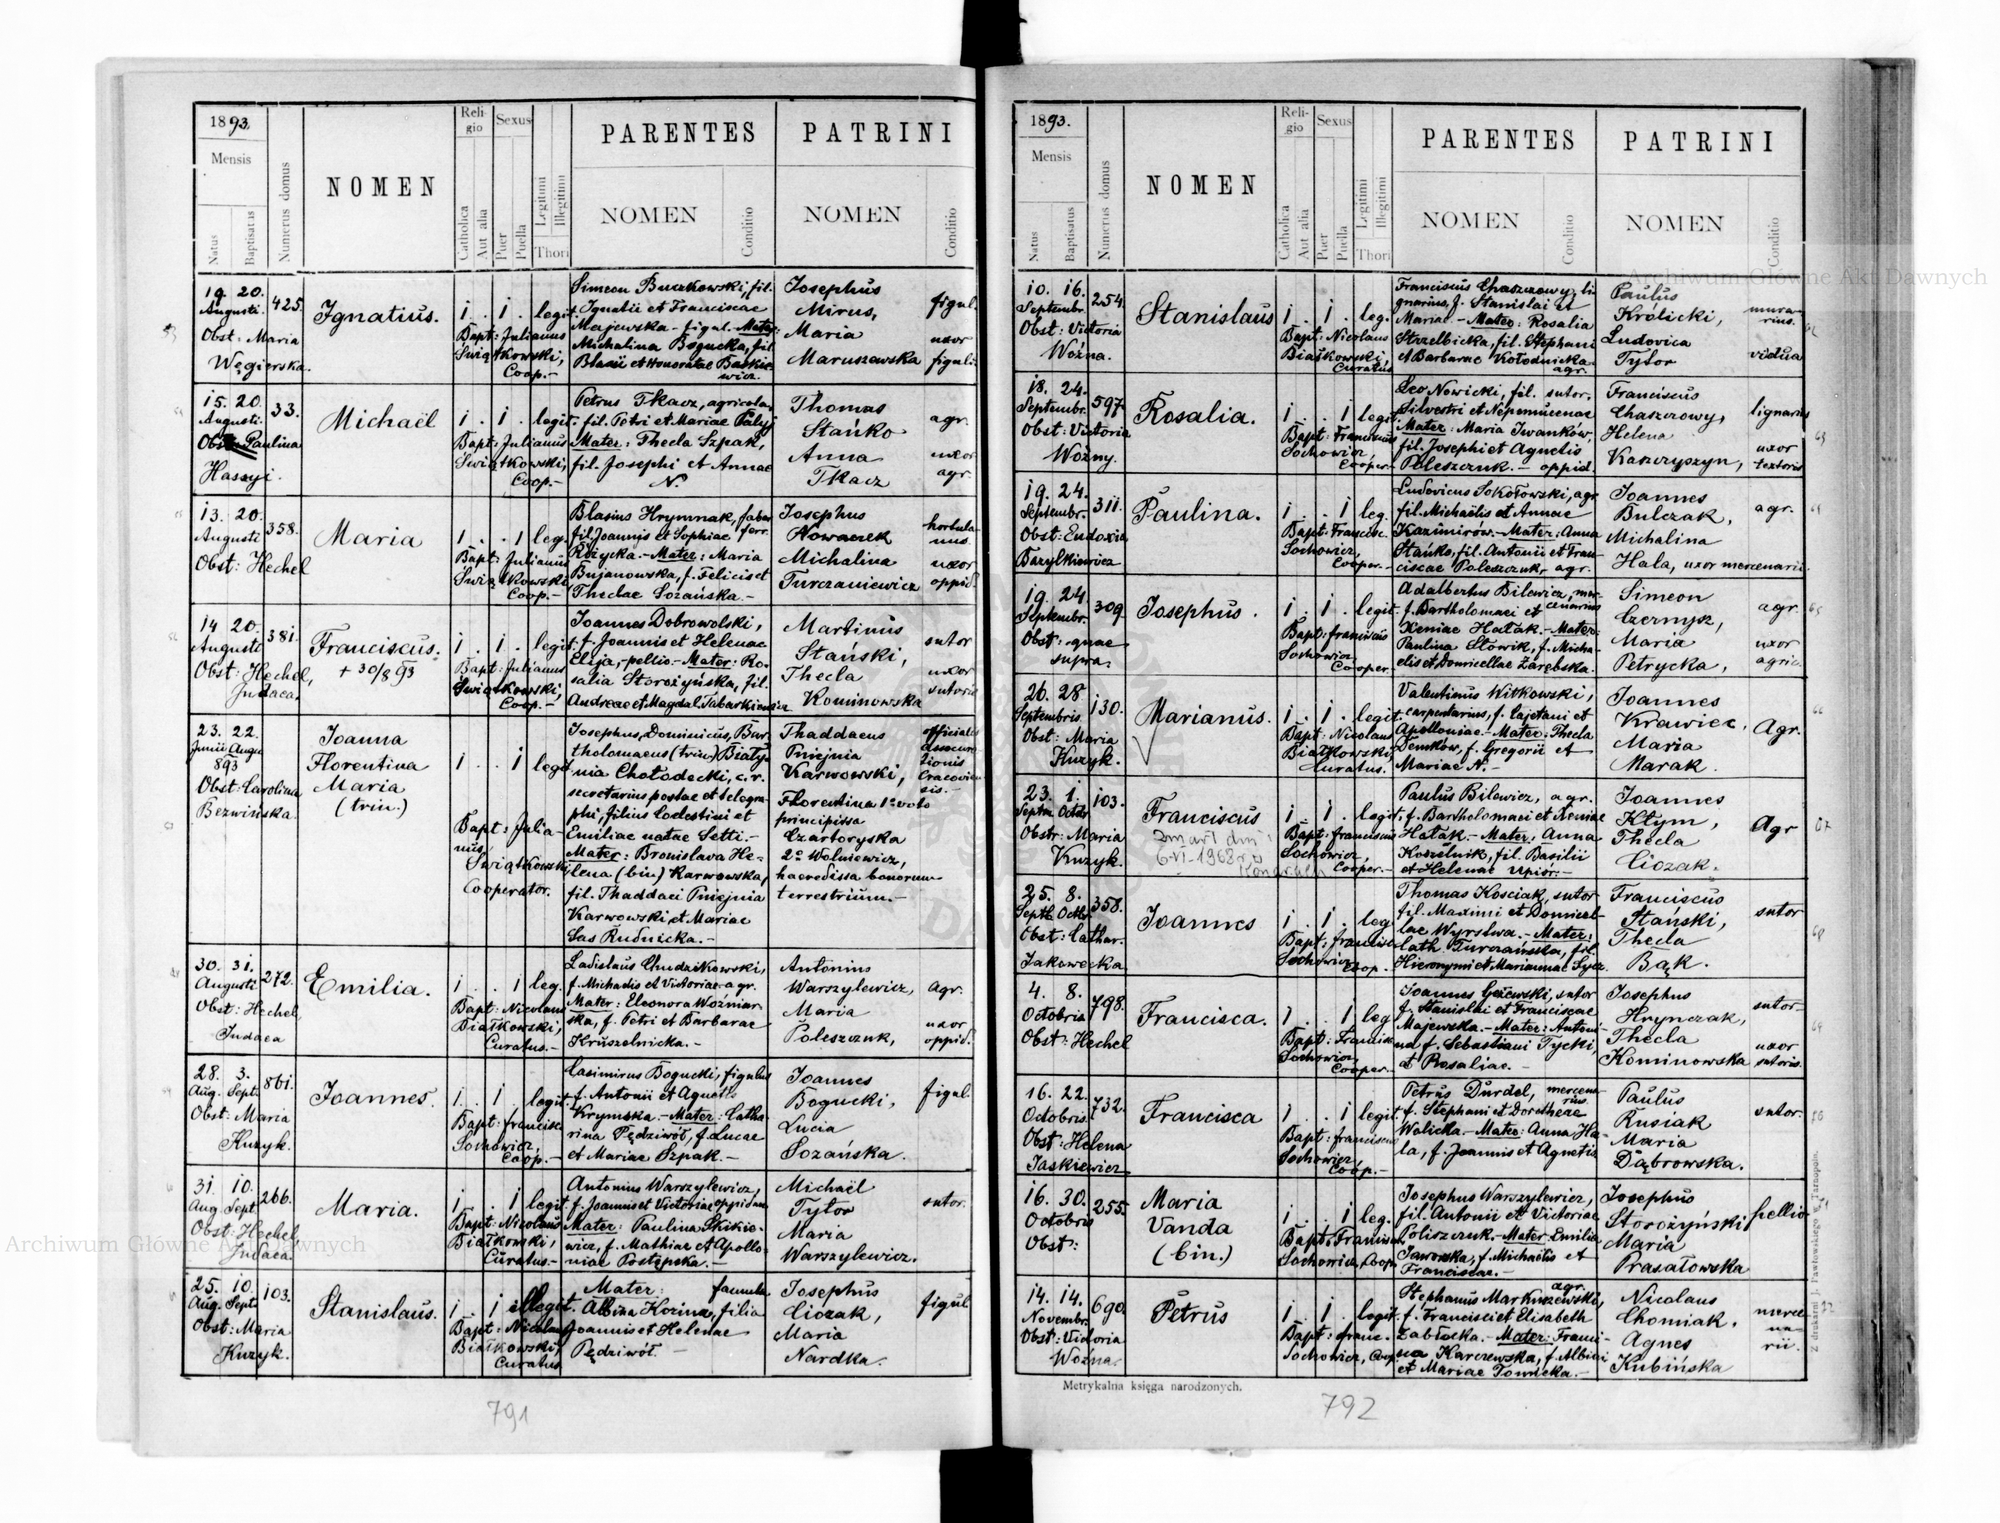 1893.
Mensis
Natus
Baptisatus
Numerus domus
NOMEN
Religio
Catholica
Aut alia
Sexus
Puer
Puella
Legitimi
Illegitimi
Thori
PARENTES
NOMEN
Conditio
PATRINI
NOMEN
Conditio
19. 20.
Augusti.
425.
Obst: Maria
Węgierska.
Ignatius.
1 . 1 . legit.
Bapt: Julianus
Świątkowski,
Coop.-
Simeon Buczkowski, fil.
Ignatii et Franciscae
Majewska - figul. Mater:
Michalina Bogucka, fil.
Blasii et Honoratae Baskie-
wicz.
Josephus
Mirus,
Maria
Maruszewska
figul.
uxor
figuli.
15. 20.
Augusti.
33.
Obst: Paulina
Hassyi.
Michaël
1 . 1 . legit.
Bapt: Julianus
Świątkowski,
Coop.-
Petrus Tkacz, agricola,
fil. Petri et Mariae Palyj
Mater: Thecla Szpak,
fil. Josephi et Annae
N.
Thomas
Stańko
Anna
Tkacz
agr.
uxor
agr.
13. 20.
Augusti
358.
Obst: Hechel
Maria
1 . . 1 leg.
Bapt: Julianus
Świątkowski
Coop.-
Blasius Hrymnak, faber
fil. Joannis et Sophiae ferr.
Różycka.- Mater: Maria
Bujanowska, f. Felicis et
Theclae Sozańska.-
Josephus
Nowaczek
Michalina
Turczaniewicz
hortula-
nus.
uxor
oppid.
14 20.
Augusti
381.
Obst: Hechel,
Judaea.
Franciscus.
+ 30/8 93
1 . 1 . legit.
Bapt: Julianus
Świątkowski,
Coop.-
Joannes Dobrowolski,
f. Joannis et Helenae
Elija, - pellio.- Mater: Ro-
salia Storożyńska, fil.
Andreae et Magdal. Tabarkiewicz
Martinus
Stański,
Thecla
Kominowska
sutor
uxor
sutoris
23. 22.
Junii Augu
893
Obst: Carolina
Bezwińska.
Joanna
Florentina
Maria
(trin.)
1 . . 1 legit.
Bapt: Julia-
nus
Świątkowski,
Cooperator.
Josephus, Dominicus, Bar-
tholomaeus (trin.) Biały-
nia Chołodecki, c. r.
secretarius postae et telegra-
phi, filius Coelestini et
Emiliae natae Letti.-
Mater: Bronislava He-
lena (bin) Karwowska,
fil. Thaddaei Pniejnia
Karwowski et Mariae
Sas Rudnicka.-
Thaddaeus
Pniejnia
Karwowski,
Florentina 1º voto
principissa
Czartoryska
2º Wolniewicz,
haeredissa bonorum
terrestrium.-
officialis
assecura-
tionis
Cracovien-
sis.-
30. 31.
Augusti
272.
Obst: Hechel,
Judaea
Emilia.
1 . . 1 leg.
Bapt: Nicolaus
Białkowski,
Curatus.-
Ladislaus Chudzikowski,
f. Michaelis et Victoriae - agr.
Mater: Eleonora Woźniar-
ska, f. Petri et Barbarae
Kruszelnicka.-
Antonius
Warszylewicz,
Maria
Poleszczuk,
agr.
uxor
oppid.
28. 3.
Aug. Sept.
861.
Obst: Maria
Kuzyk.
Joannes.
1 . 1 . legit.
Bapt: Francisc.
Sochowicz,
Coop.-
Casimirus Bogucki, figulus
f. Antonii et Agnetis
Krymska.- Mater: Catha-
rina Pędziwół, f. Lucae
et Mariae Szpak.-
Joannes
Bogucki,
Lucia
Sozańska.
figul.
31. 10.
Aug. Sept.
266.
Obst: Hechel,
Judaea.
Maria.
1 . . 1 legit.
Bapt: Nicolaus
Białkowski,
Curatus.-
Antonius Warszylewicz,
f. Joannis et Victoriae oppidan.
Mater: Paulina Skikie-
wicz, f. Mathiae et Apollo-
niae Postępska.-
Michaël
Tytor
Maria
Warszylewicz.
sutor.
25. 10.
Aug. Sept.
103.
Obst: Maria
Kuzyk.
Stanislaus.
1 . 1 illegit.
Bapt: Nicolaus
Białkowski,
Curatus
Mater: famula.
Albina Korina, filia
Joannis et Helenae
Pędziwół.-
Josephus
Ciózak,
Maria
Nardka.
figul.
791
1893.
Mensis
Natus
Baptisatus
Numerus domus
NOMEN
Religio
Catholica
Aut alia
Sexus
Puer
Puella
Legitimi
Illegitimi
Thori
PARENTES
NOMEN
Conditio
PATRINI
NOMEN
Conditio
10. 16.
Septembr.
254.
Obst: Victoria
Woźna.
Stanislaus
1 . 1 . leg.
Bapt: Nicolaus
Białkowski,
Curatus
Franciscus Chaszczowy, li-
gnarius, f. Stanislai et
Mariae.- Mater: Rosalia
Strzelbicka, fil. Stephani
et Barbarae Kołodnicka.
agr.
Paulus
Królicki,
Ludovica
Tytor
mura-
rius.
vidua
18. 24.
Septembr.
597.
Obst: Victoria
Woźny.
Rosalia.
1 . . 1 legit.
Bapt: Franciscus
Sochowicz,
Cooper.-
Leo Nowicki, fil. sutor.
Silvestri et Nepomucenae
Mater: Maria Iwanków,
fil. Josephi et Agnetis
Poleszczuk.- oppid.
Franciscus
Chaszczowy,
Helena
Kaszczyszyn,
lignarius
uxor
textoris
19. 24.
Septembr.
311.
Obst: Eudoxia
Bazylkiewicz
Paulina.
1 . . 1 leg.
Bapt: Francisc.
Sochowicz,
Cooper.-
Ludovicus Sokołowski, agr
fil. Michaëlis et Annae
Kazimirów.- Mater: Anna
Stańko, fil. Antonii et Fran-
ciscae Poleszczuk, agr.
Joannes
Bulczak,
Michalina
Hala, uxor mercenarii.
agr.
19. 24
Septembr.
309.
Obst: quae
supra.
Josephus.
1 . 1 . legit.
Bapt: Franciscus
Sochowicz
Cooper.
Adalbertus Bilewicz, mer-
cenarius
f. Bartholomaei et
Xeniae Hałak.- Mater:
Paulina Słowik, f. Micha-
elis et Domicellae Zarębska.
Simeon
Czernysz,
Maria
Petrycka,
agr.
uxor
agric.
26. 28
Septembris
130.
Obst: Maria
Kuzyk.
Marianus.
1 . 1 . legit.
Bapt: Nicolaus
Białkowski,
Curatus.
Valentinus Witkowski,
carpentarius, f. Cajetani et
Apolloniae.- Mater: Thecla
Demków, f. Gregorii et
Mariae N.-
Joannes
Krawiec,
Maria
Marak.
Agr.
23. 1.
Septr. Octobr
103.
Obstr: Maria
Kuzyk.
Franciscus
zmarł dni
6-VI-1968 r. w
1 . 1 . legit.
Bapt: Franciscus
Sochowicz
Cooper.-
Paulus Bilewicz, agr.
f. Bartholomaei et Xeniae
Hałak.- Mater: Anna
Koszelnik, fil. Basilii
et Helenae Upior.-
Joannes
Kłym,
Thecla
Ciozak.
Agr
25. 8.
Septb. Octbr.
358.
Obst: Cathar.
Jakowecka
Joannes
1 . 1 . leg.
Bapt: Francisc.
Sochowicz
Coop.-
Thomas Kosciak, sutor
fil. Maximi et Domicel-
lae Wyrstwa.- Mater:
Cath. Turczańska, fil.
Hieronymi et Mariannae Sycz.
Franciscus
Stański,
Thecla
Bąk.
sutor
4. 8.
Octobris
798.
Obst: Hechel
Francisca.
1 . . 1 leg
Bapt: Francisc.
Sochowicz
Cooper.-
Joannes Gężewski, sutor
f. Stanislai et Franciscae
Majewska.- Mater: Antoni-
na f. Sebastiani Tycki,
et Rosaliae.-
Josephus
Hrynczak,
Thecla
Kominowska
sutor
uxor
sutoris.
16. 22.
Octobris
732.
Obst: Helena
Jaskiewicz
Francisca
1 . . 1 legit.
Bapt: Franciscus
Sochowicz,
Coop.-
Petrus Durdel, mercena-
rius.
f. Stephani et Dorotheae
Wolicka.- Mater: Anna Ha-
la, f. Joannis et Agnetis
Paulus
Rusiak
Maria
Dąbrowska.
sutor.
16. 30.
Octobris
255.
Obst:
Maria
Vanda
(bin.)
1 . . 1 leg.
Bapt: Francisc.
Sochowicz, Coop.
Josephus Warszylewicz,
fil. Antonii et Victoriae
Poliszczuk.- Mater: Emilia
Jaworska, f. Michaëlis et
Franciscae.-
Josephus
Storożyński
Maria
Prasałowska
pellio
14. 14.
Novembr.
690.
Obst: Victoria
Woźna.
Petrus
1 . 1 . legit.
Bapt: Franc.
Sochowicz, Coop.
agr.
Stephanus Markuszewski,
f. Francisci et Elisabeth
Zabłocka.- Mater: Franci-
sca Karczewska, f. Albini
et Mariae Tomicka.-
Nicolaus
Chomiak.
Agnes
Kubińska
merce-
na-
rii.
Metrykalna księga narodzonych.
Z drukarni J. Pawłowskiego w Tarnopolu.
792
Archiwum Główne Akt Dawnych
Archiwum Główne Akt Dawnych